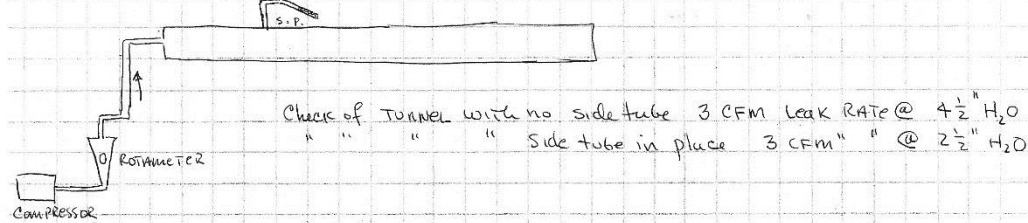 S.P.
Check of TUNNEL with no side tube 3 CFM Leak RATE @ 4 1/2" H2O
" " " " Side tube in place 3 CFM " " @ 2 1/2" H2O
ROTAMETER
COMPRESSOR